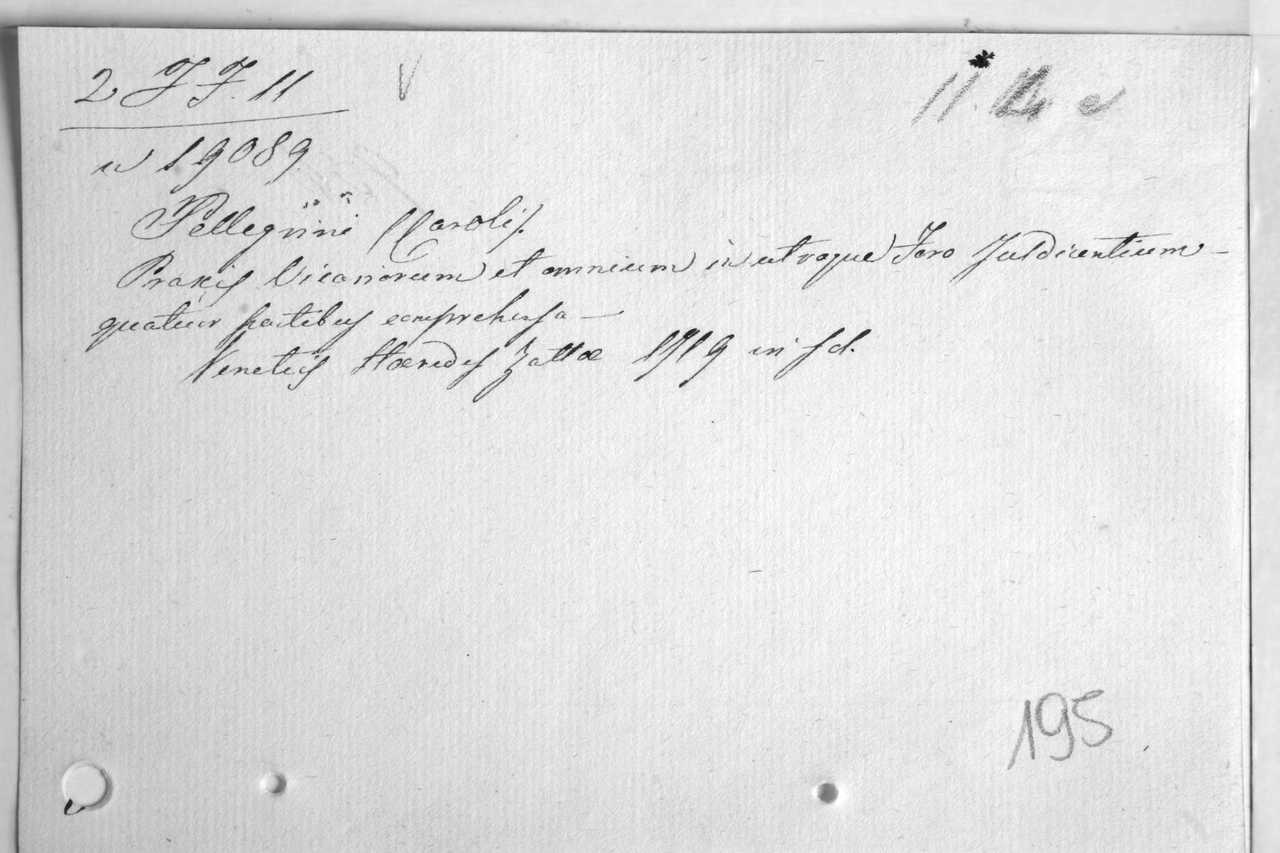 2 J J. 11 V
11. 12 e
u 19089
Pellegrini (Caroli).
Praxis Vicariorum et omnium in utroque Foro Jusdicentium -
quatuor partibus comprehensa -
Venetiis Hæredes Zattæ 1719 in fol.
195